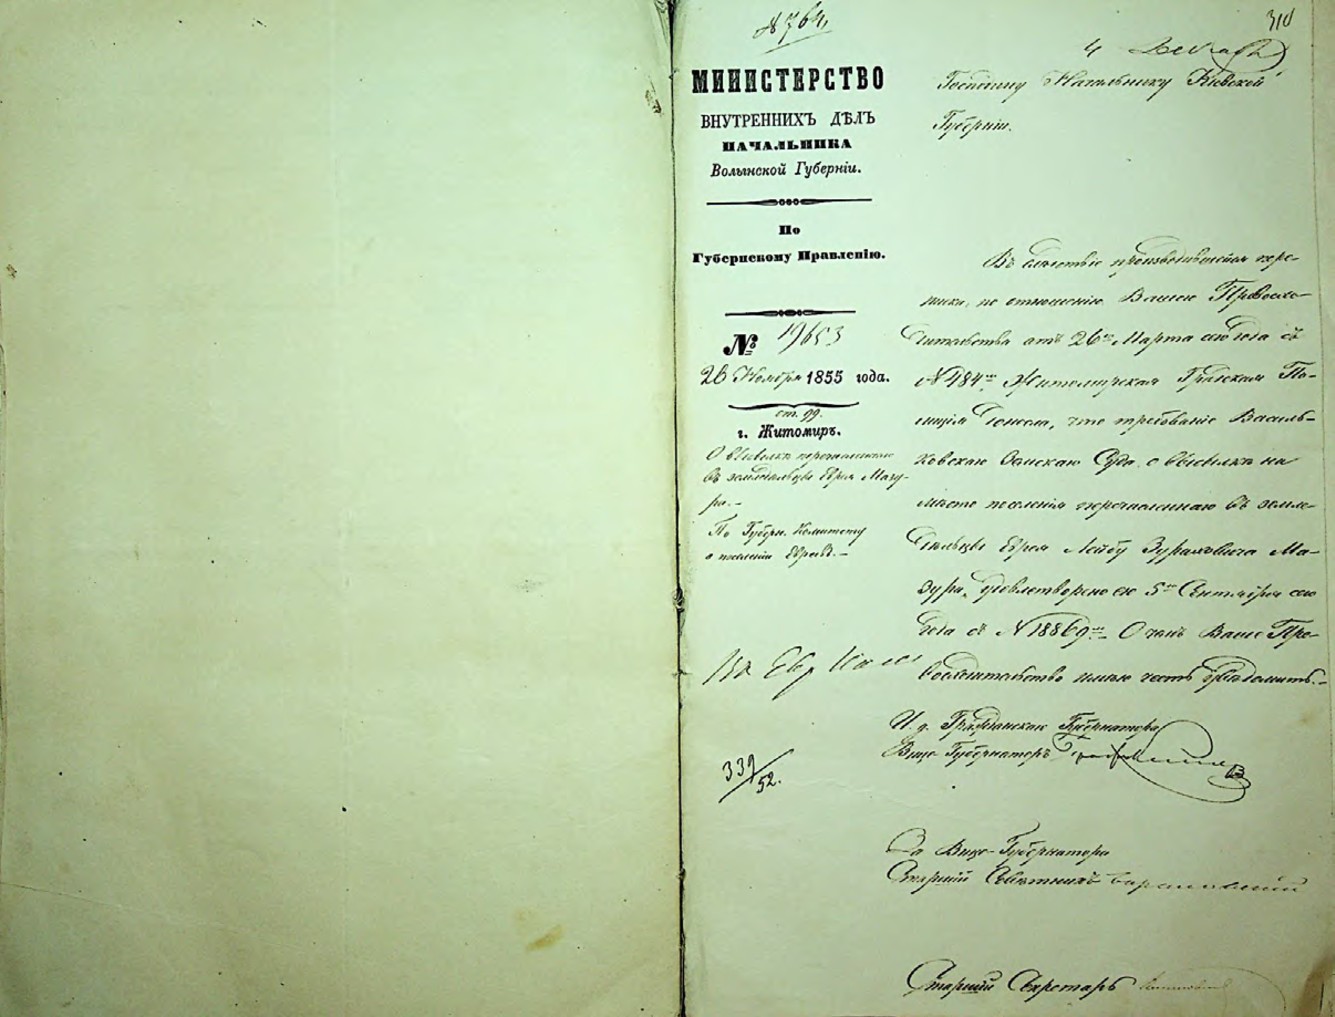 № 764.
310
4 Декабря
МИНИСТЕРСТВО
ВНУТРЕННИХЪ ДѢЛЪ
НАЧАЛЬНИКА
Волынской Губерніи.
По
Губернскому Правленію.
№ 19653
26 Ноября 1855 года.
ст. 99.
г. Житомиръ.
О высылкѣ перечисленнаго
въ земледѣльцы Еврея Мазу-
ра.-
По Губерн. Комитету
о поселеніи Евреевъ.-
339/52.
Господину Начальнику Кіевской
Губерніи.
Въ слѣдствіе производившейся пере-
писки, по отношенію Вашего Превосхо-
дительства отъ 26го Марта сего года съ
№ 484мъ, Житомирская Градская По-
лиція донесла, что требованіе Василь-
ковскаго Земскаго Суда о высылкѣ на
мѣсто поселенія перечисленнаго въ земле-
дѣльцы Еврея Лейбу Зураховича Ма-
зура, удовлетворено ею 5го Сентября сего
года съ № 18869мъ. О чемъ Ваше Пре-
восходительство имѣю честь увѣдомить.-
И. д. Гражданскаго Губернатора
Вице Губернаторъ
За Вице-Губернатора
Старшій Совѣтникъ
Старшій Секретарь